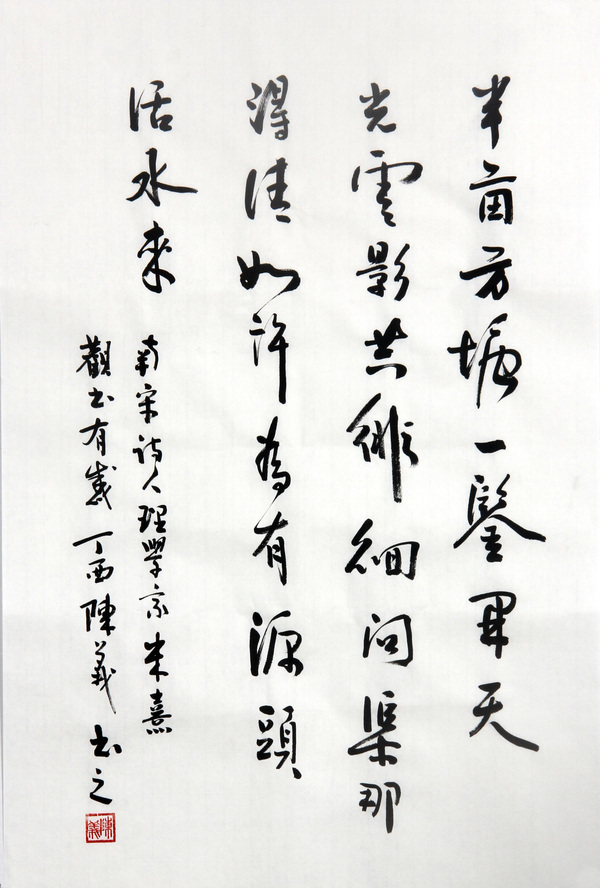 半亩方塘一鑒開天
光雲影共徘徊問渠那
得清如許為有源頭
活水來
南宋詩人理學家朱熹
觀书有感丁酉陳義书之
陳義